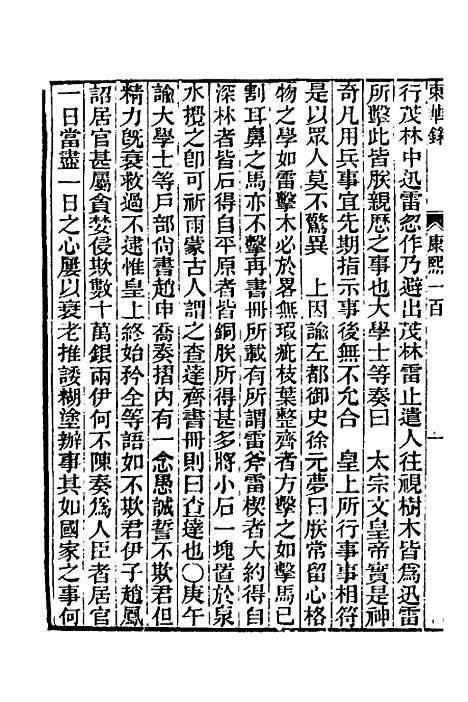 東華錄 康熙一百 一
行茂林中迅雷忽作乃避出茂林雷止遣人往視樹木皆爲迅雷
所擊此皆朕親歴之事也大學士等奏曰 太宗文皇帝實是神
奇凡用兵事宜先期指示事後無不允合 皇上所行事事相符
是以眾人莫不驚異 上因諭左都御史徐元夢曰朕常留心格
物之學如雷擊木必於畧無瑕疵枝葉整齊者方擊之如擊馬已
割耳鼻之馬亦不擊再書冊所載有所謂雷斧雷楔者大約得自
深林者皆石得自平原者皆銅朕所得甚多將小石一塊置於泉
水攪之卽可祈雨蒙古人謂之查達齊書冊則曰查達也〇庚午
諭大學士等戶部尙書趙申喬奏摺内有一念愚誠誓不欺君但
精力旣衰救過不逮惟皇上終始矜全等語如不欺君伊子趙鳳
詔居官甚屬貪婪侵欺數十萬銀兩伊何不陳奏爲人臣者居官
一日當盡一日之心屢以衰老推諉糊塗辦事其如國家之事何